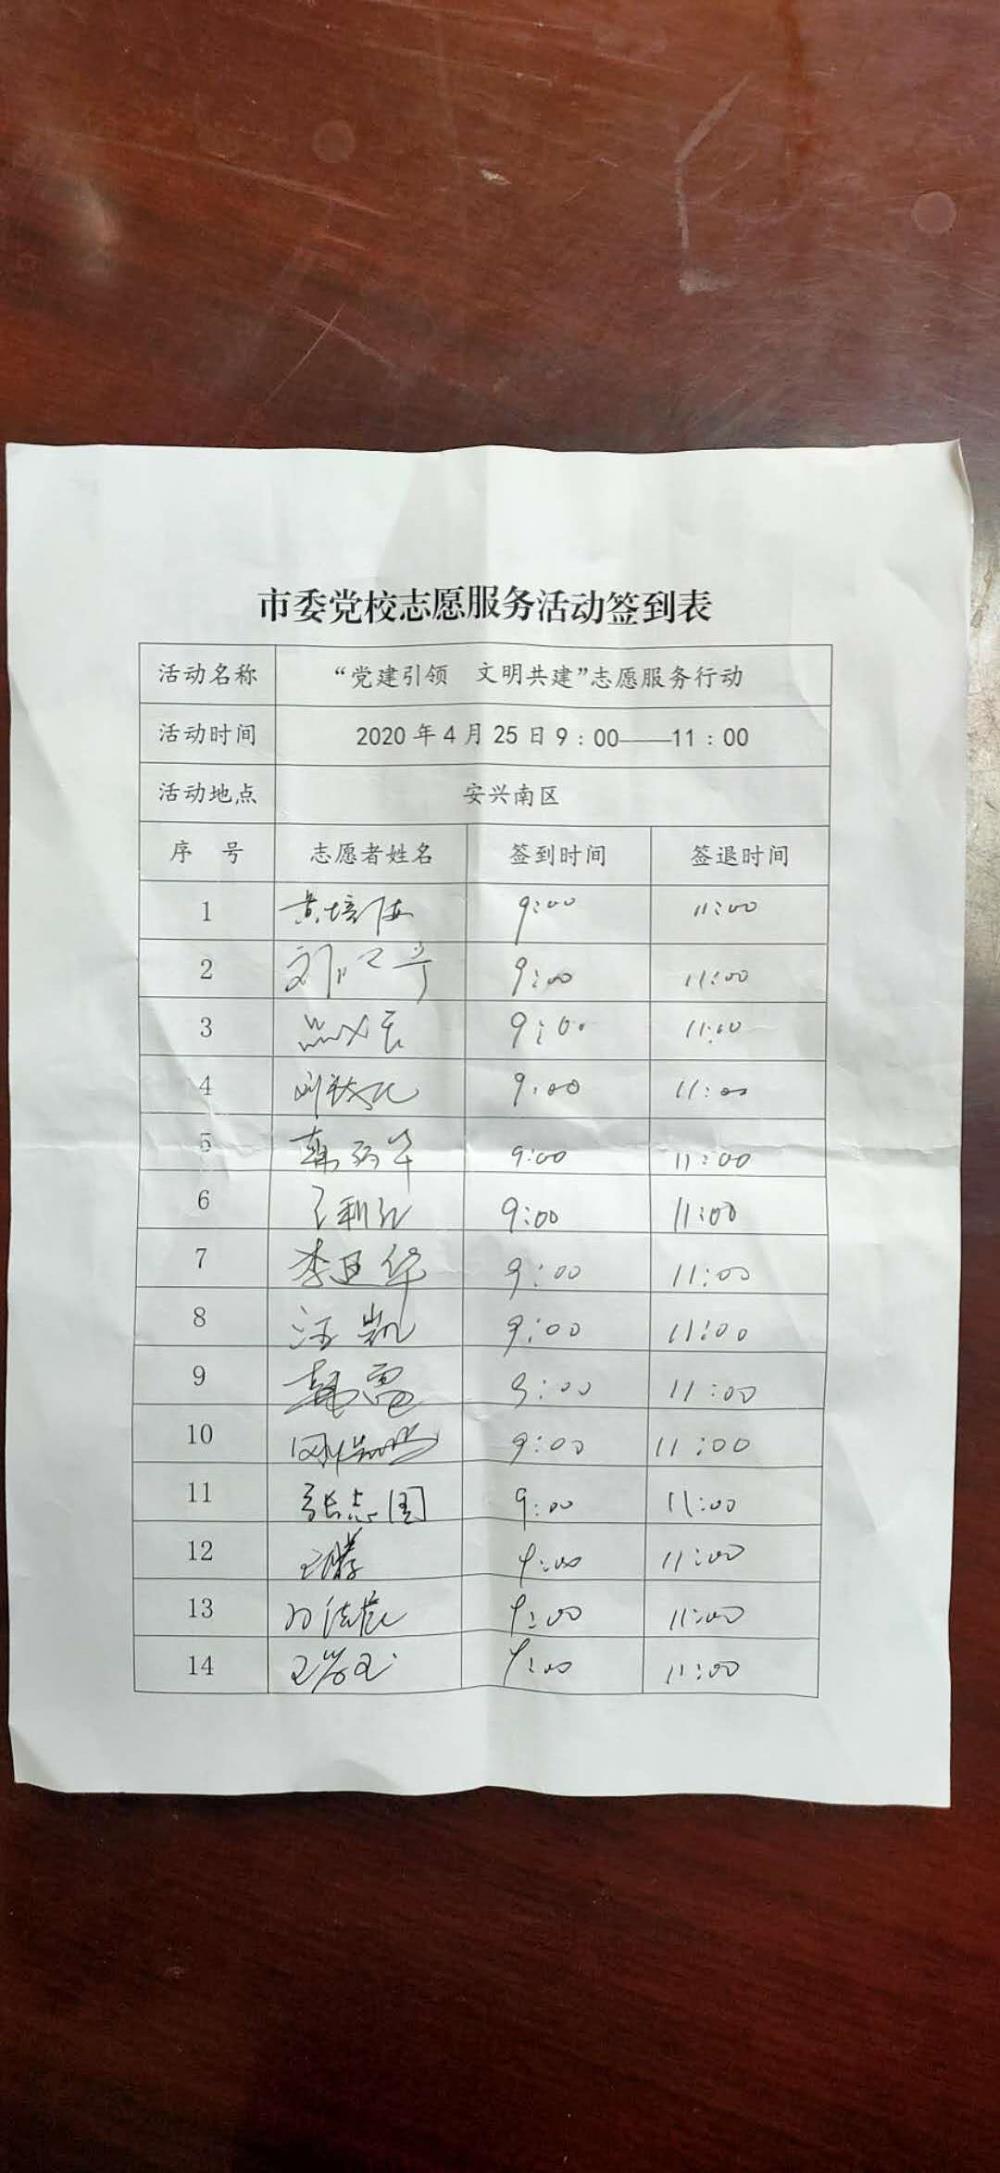 市委党校志愿服务活动签到表
活动名称 “党建引领 文明共建”志愿服务行动
活动时间 2020年4月25日9：00——11：00
活动地点 安兴南区
序 号 志愿者姓名 签到时间 签退时间
1 9:00 11:00
2 9:00 11:00
3 9:00 11:00
4 9:00 11:00
5 9:00 11:00
6 9:00 11:00
7 李亚华 9:00 11:00
8 汪凯 9:00 11:00
9 韩雷 9:00 11:00
10 9:00 11:00
11 张志国 9:00 11:00
12 9:00 11:00
13 9:00 11:00
14 9:00 11:00